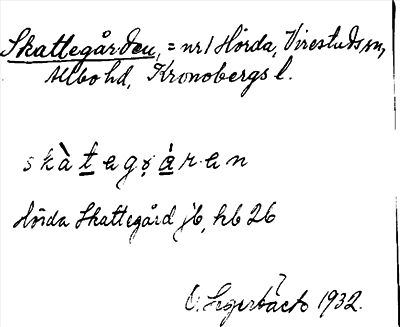 Skattegården, = nr 1 Hörda, Virestads sn,
Allbo hd, Kronobergs l.
skàtegɷáren
Hörda Skattegård jb, hb 26
O. Segerbäck 1932.